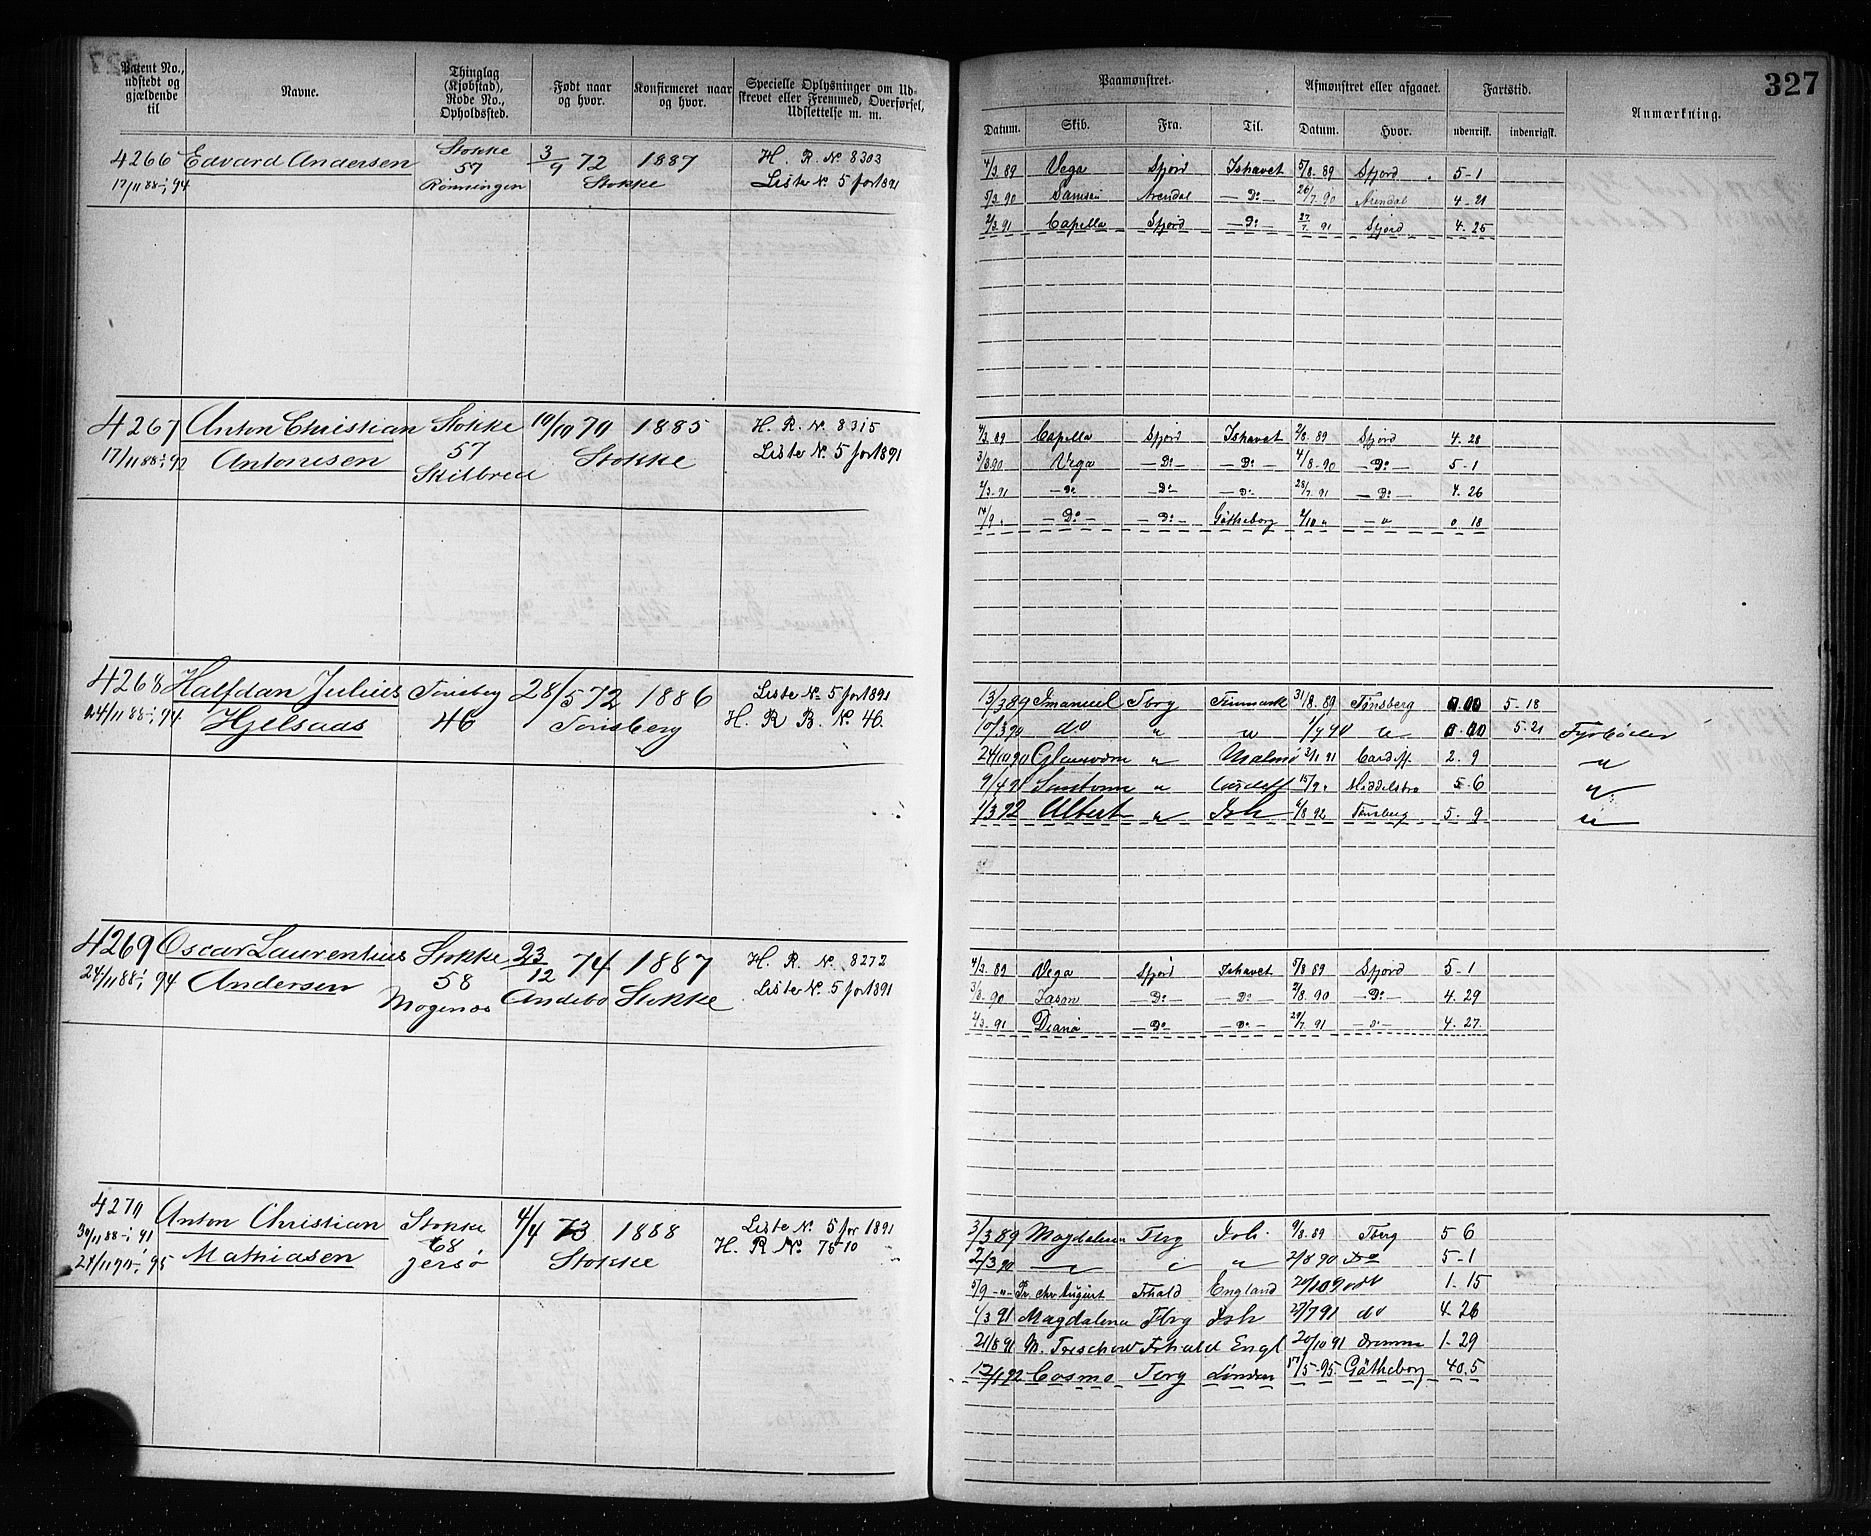 327
Patent No., udstedt og gjældende til
Navne.
Thinglag (Kjøbstad), Rode No., Opholdssted.
Født naar og hvor.
Konfirmeret naar og hvor.
Specielle Oplysninger om Udskrevet eller Fremmed, Overførsel, Udslettelse m. m.
Paamønstret.
Afmønstret eller afgaaet.
Fartstid.
Anmærkning.
Datum. Skib. Fra. Til. Datum. Hvor. udenrisk. indenrigsk.
4266 Edvard Andersen Stokke 3/9 72 1887 H. R. No 8303
17/11 88-94 57 Stokke Liste No 5 for 1891
Rønningen
4/3 89 Vega Sfjord Ishavet 5/8 89 Sfjord 5-1
5/3 90 Samson Arendal -Do- 26/7 90 Arendal 4-21
2/3 91 Capella Sfjord -Do- 27/7 91 Sfjord 4.25
4267 Anton Christian Stokke 10/10 70 1885 H. R. No 8315
17/11 88-92 Antonisen 57 Stokke Liste No 5 for 1891
Skilbred
4/3 89 Capella Sfjord Ishavet 2/8 89 Sfjord 4.28
3/3 90 Vega -Do- -Do- 4/8-90 -Do- 5-1
2/3-91 -Do- -Do- -Do- 28/7 91 -Do- 4.26
14/9 " -Do- -Do- Gøtheborg 2/10 " - " 0 18
4268 Halfdan Julius Tønsberg 28/5 72 1886 Liste No 5 for 1891
24/11 88-94 Hjelsaas 46 Tønsberg H. R. B. No 46.
13/3 89 Imanuel Tbrg Finmark 31/8 89 Tønsberg 0.00 5-18
10/3 90 do " " 1/9 90 " 0.00 5.21 Fyrbøder
24/10 90 " Malmø 2/1 91 Cardiff 2.9 "
9/4 91 " Cardiff 15/9 " Middelsbro 5 6 "
1/3 92 Albert " Ish 6/8 92 Tønsberg 5-9 "
4269 Oscar Laurentius Stokke 23/12 74 1887 H. R. No 8272
24/11 88-94 Andersen 58 Andebo Stokke Liste No 5 for 1891
Mogenæs
4/3 89 Vega Sfjord Ishavet 5/8 89 Sfjord 5-1
3/3-90 Jason -Do- -Do- 2/8.90 -Do- 4.29
2/3-91 Diana -Do- -Do- 29/7 91 -Do- 4.27
4270 Anton Christian Stokke 4/4 73 1888 Liste No 5 for 1891
30/11 88-91 Mathiasen 68 Stokke H. R No 7510
21/11 90-95 Jersø
3/3 89 Magdalena Tbrg Ish. 9/8.89 Tberg 5 6
2/3 90 " " " 2/8 90 Do 5-1
5/9 -"- Pr. Chr. August Frhald England 20/10 90 do 1.15
1/3 91 Magdalena Tbrg Ish 27/7 91 do 4.26
21/8 91 M. Treschow Frhald Engl 20/10 91 1-29
12/1 92 Cosmo Tbrg London 17/5-95 Gøtheborg 40.5